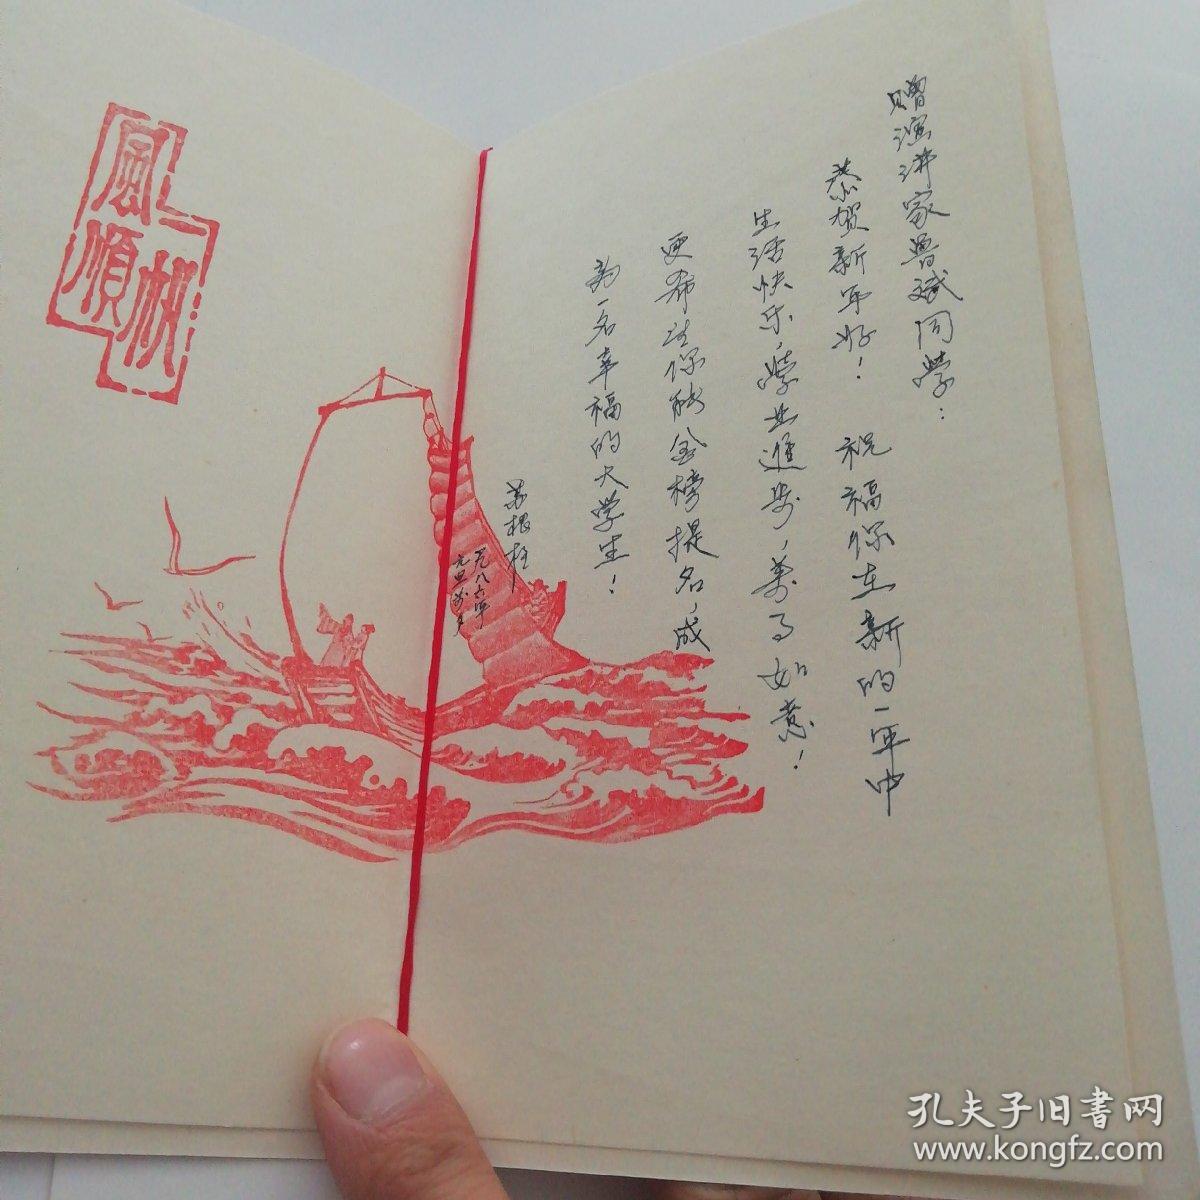 赠演讲家鲁斌同学：
恭贺新年好！ 祝福你在新的一年中
生活快乐，学业進步，萬事如意！
更希望你能金榜提名，成
为一名幸福的大学生！
苏根柱
一九八六年
元旦前夕
風順
帆
孔夫子旧書网
www.kongfz.com